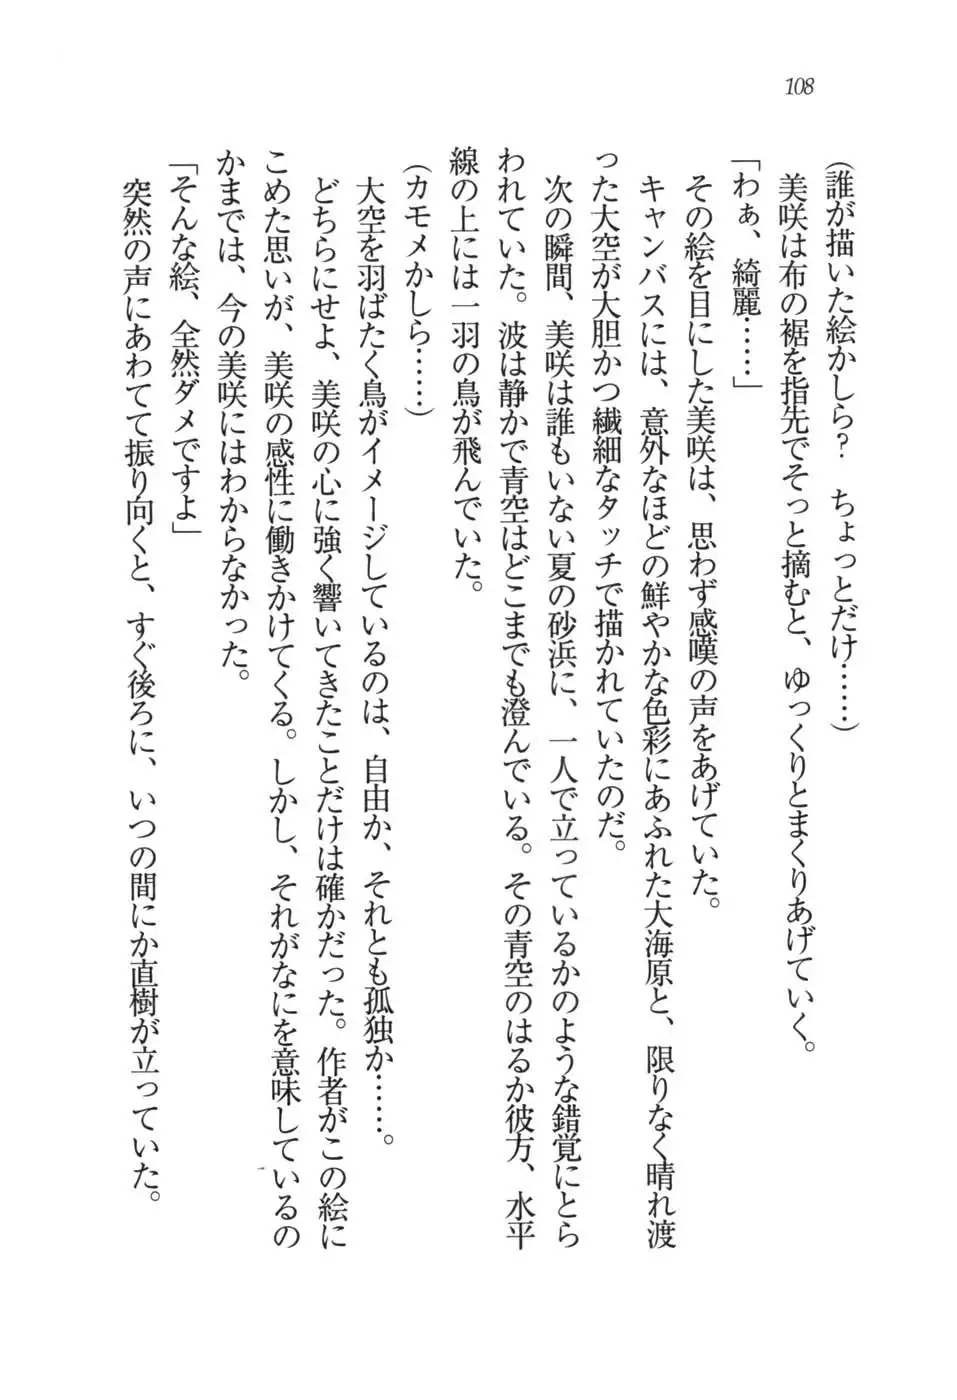 108
（誰が描いた絵かしら？　ちょっとだけ……）
美咲は布の裾を指先でそっと摘むと、ゆっくりとまくりあげていく。
「わぁ、綺麗……」
その絵を目にした美咲は、思わず感嘆の声をあげていた。
キャンバスには、意外なほどの鮮やかな色彩にあふれた大海原と、限りなく晴れ渡
った大空が大胆かつ繊細なタッチで描かれていたのだ。
次の瞬間、美咲は誰もいない夏の砂浜に、一人で立っているかのような錯覚にとら
われていた。波は静かで青空はどこまでも澄んでいる。その青空のはるか彼方、水平
線の上には一羽の鳥が飛んでいた。
（カモメかしら……）
大空を羽ばたく鳥がイメージしているのは、自由か、それとも孤独か……。
どちらにせよ、美咲の心に強く響いてきたことだけは確かだった。作者がこの絵に
こめた思いが、美咲の感性に働きかけてくる。しかし、それがなにを意味しているの
かまでは、今の美咲にはわからなかった。
「そんな絵、全然ダメですよ」
突然の声にあわてて振り向くと、すぐ後ろに、いつの間にか直樹が立っていた。